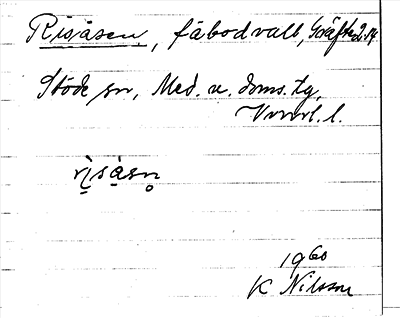 Risåsen, fäbodvall, Gräfte 2:14
Stöde sn, Med. v. doms. tg,
Vnorrl. l.
rìsåsn̥
1960
K Nilsson